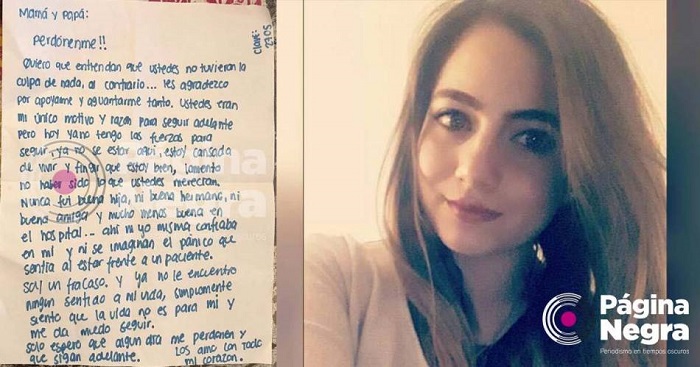 Mamá y Papá:
Perdónenme!!
Clave:
2705
Quiero que entiendan que ustedes no tuvieron la
culpa de nada, al contrario... les agradezco
por apoyarme y aguantarme tanto. Ustedes eran
mi único motivo y razón para seguir adelante
pero hoy ya no tengo las fuerzas para
seguir, ya no se estar aquí, estoy cansada
de vivir y fingir que estoy bien, lamento
no haber sido lo que ustedes merecían.
Nunca fui buena hija, ni buena hermana, ni
buena amiga y mucho menos buena en
el hospital... ahí ni yo misma confiaba
en mi y ni se imaginan el pánico que
sentía al estar frente a un paciente.
Soy un fracaso. Y ya no le encuentro
ningún sentido a mi vida, simplemente
siento que la vida no es para mi y
me da miedo seguir.
Solo espero que algun dia me perdonen y
que sigan adelante. Los amo con todo
mi corazón.
Página
Negra
Página
Negra
Periodismo en tiempos oscuros